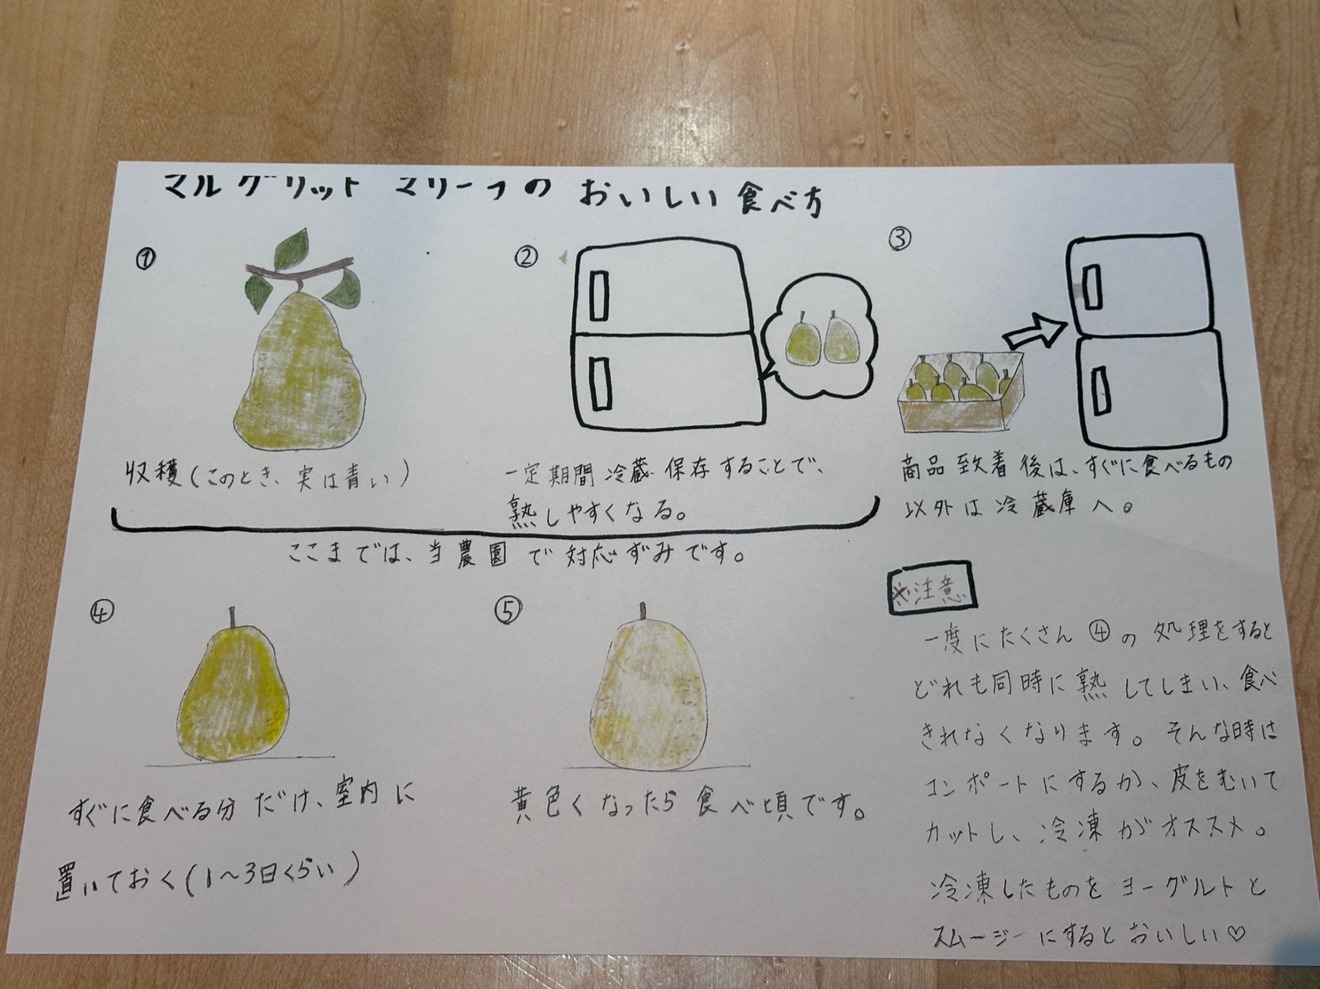 マルグリット マリーラの おいしい 食べ方
①
収穫(このとき、実は青い)
②
一定期間 冷蔵 保存 することで、
熟しやすくなる。
ここまでは、当農園で対応ずみです。
③
商品 到着 後は、すぐに食べるもの
以外は 冷蔵庫へ。
④
すぐに食べる分 だけ、室内に
置いておく(1〜3日くらい)
⑤
黄色くなったら 食べ頃です。
※注意
一度にたくさん ④の処理をすると
どれも同時に熟してしまい、食べ
きれなくなります。そんな時は
コンポートにするか、皮をむいて
カットし、冷凍がオススメ。
冷凍したものをヨーグルトと
スムージーにするとおいしい♡